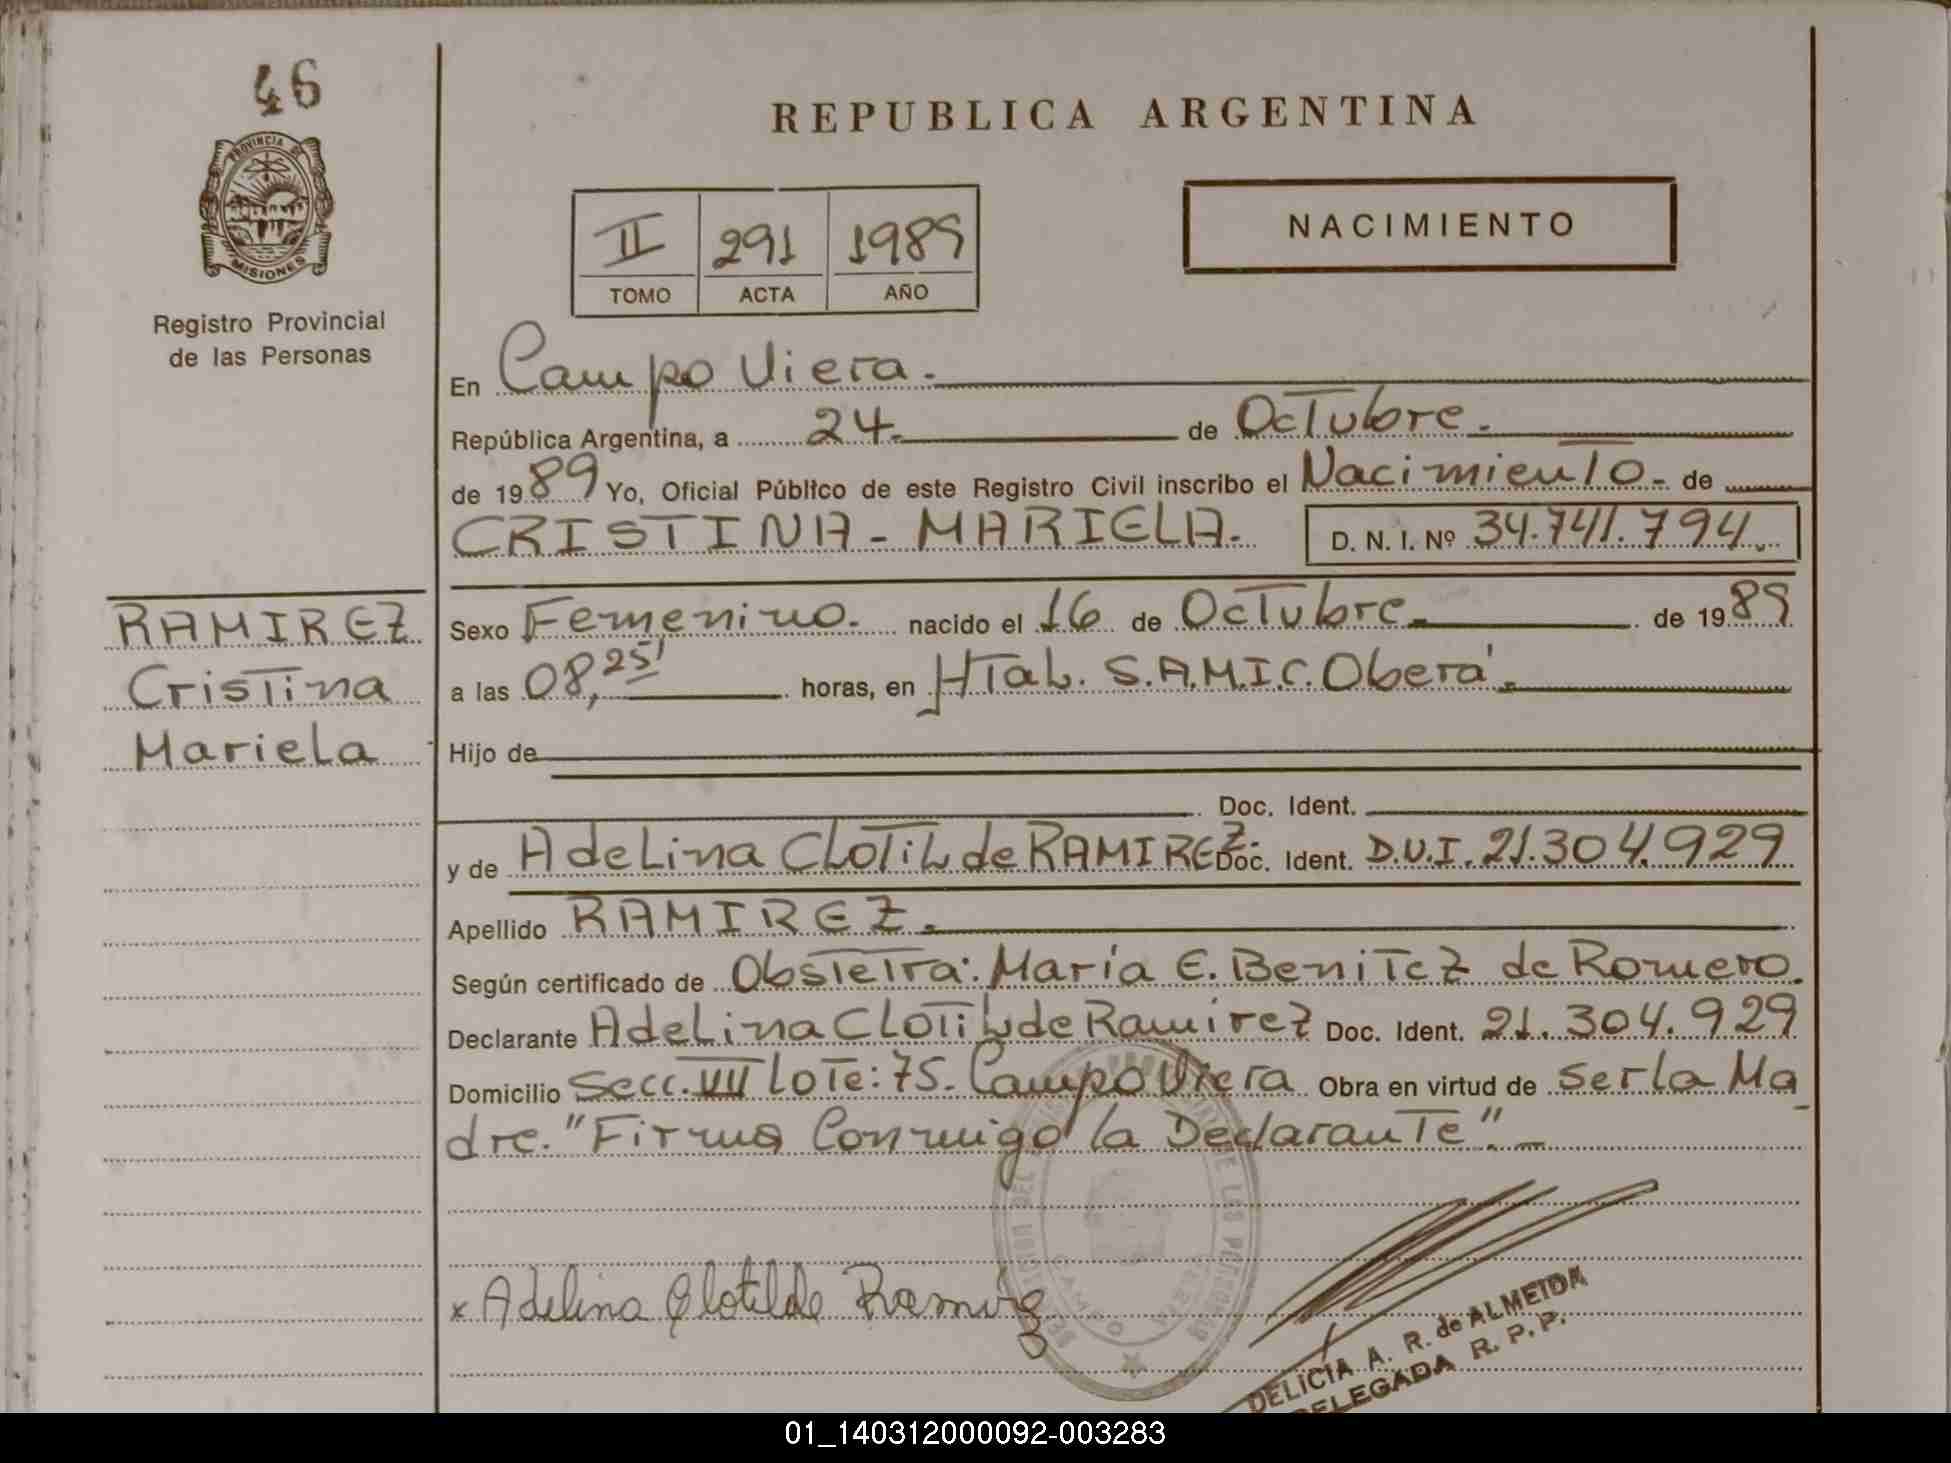 46
PROVINCIA DE
MISIONES
Registro Provincial
de las Personas
REPUBLICA ARGENTINA
II 291 1989
TOMO ACTA AÑO
NACIMIENTO
En Campo Viera.
República Argentina, a 24. de Octubre.
de 1989 Yo, Oficial Público de este Registro Civil inscribo el Nacimiento. de
CRISTINA - MARIELA. D. N. I. Nº 34.741.794.
RAMIREZ
Cristina
Mariela
Sexo Femenino. nacido el 16 de Octubre. de 1989
a las 08,25' horas, en Htal. S.A.M.I.C. Oberá.
Hijo de
Doc. Ident.
y de Adelina Clotilde RAMIREZ. Doc. Ident. D.U.I. 21.304.929
Apellido RAMIREZ.
Según certificado de Obstetra: María E. Benitez de Romero.
Declarante Adelina Clotilde Ramirez Doc. Ident. 21.304.929
Domicilio Secc. VII Lote: 75. Campo Viera Obra en virtud de ser la Ma
dre. "Firma Conmigo la Declarante".
x Adelina Clotilde Ramirez
DELICIA A. R. de ALMEIDA
DELEGADA R. P. P.
01_140312000092-003283